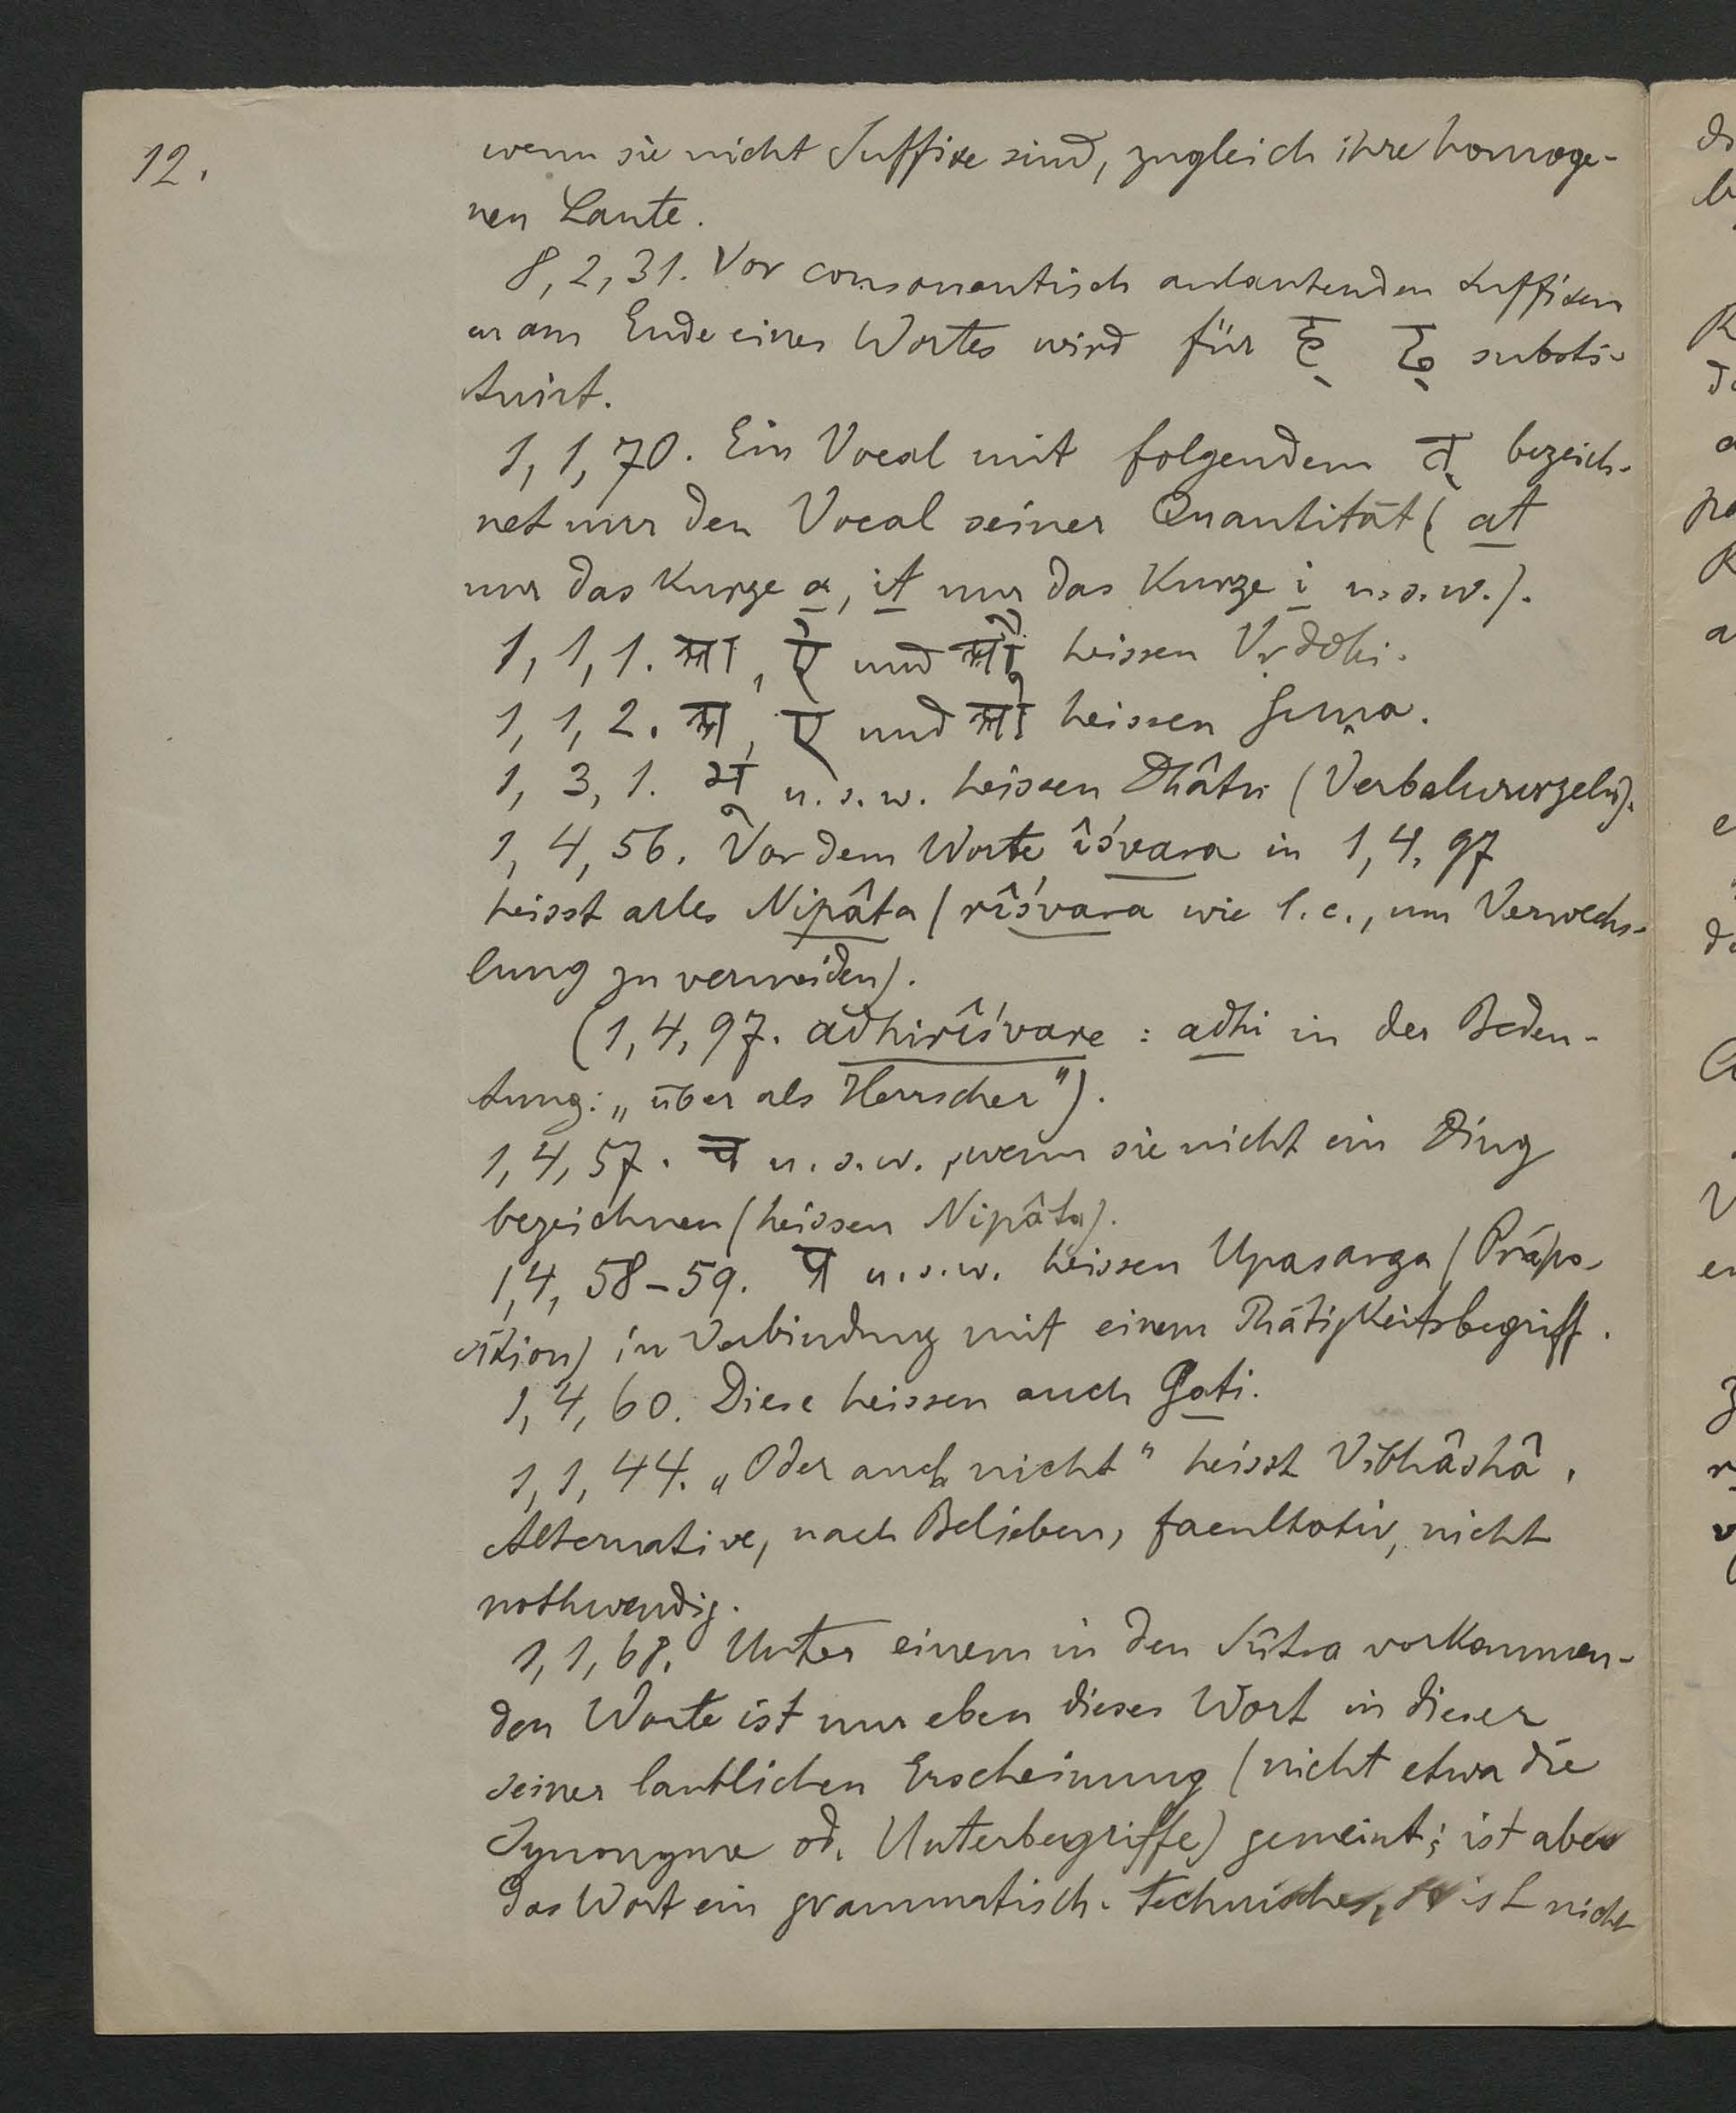 12.
wenn sie nicht Suffixe sind, zugleich ihre homoge-
nen Laute.
8, 2, 31. Vor consonantisch anlautenden Suffixen
u. am Ende eines Wortes wird für ह् ढ् substi-
tuirt.
1, 1, 70. Ein Vocal mit folgendem त् bezeich-
net nur den Vocal seiner Quantität (at
nur das kurze a, it nur das kurze i u. s. w.).
1, 1, 1. आ, ऐ und औ heissen Vṛddhi.
1, 1, 2. अ, ए und ओ heissen Guṇa.
1, 3, 1. भू u. s. w. heissen Dhâtu (Verbalwurzeln).
1, 4, 56. Vor dem Worte îśvara in 1, 4, 97
heisst alles Nipâta (rîśvara wie l. c., um Verwechs-
lung zu vermeiden).
(1, 4, 97. adhirîśvare : adhi in der Bedeu-
tung: „über als Herrscher").
1, 4, 57. च u. s. w., wenn sie nicht ein Ding
bezeichnen (heissen Nipâta).
1, 4, 58-59. प्र u. s. w. heissen Upasarga (Präpo-
sition) in Verbindung mit einem Thätigkeitsbegriff.
1, 4, 60. Diese heissen auch Gati.
1, 1, 44. „Oder auch nicht" heisst Vibhâshâ,
Alternative, nach Belieben, facultativ, nicht
nothwendig.
1, 1, 68. Unter einem in den Sûtra vorkommen-
den Worte ist nur eben dieses Wort in dieser
seiner lautlichen Erscheinung (nicht etwa die
Synonyme od. Unterbegriffe) gemeint; ist aber
das Wort ein grammatisch-technisches, so ist nicht